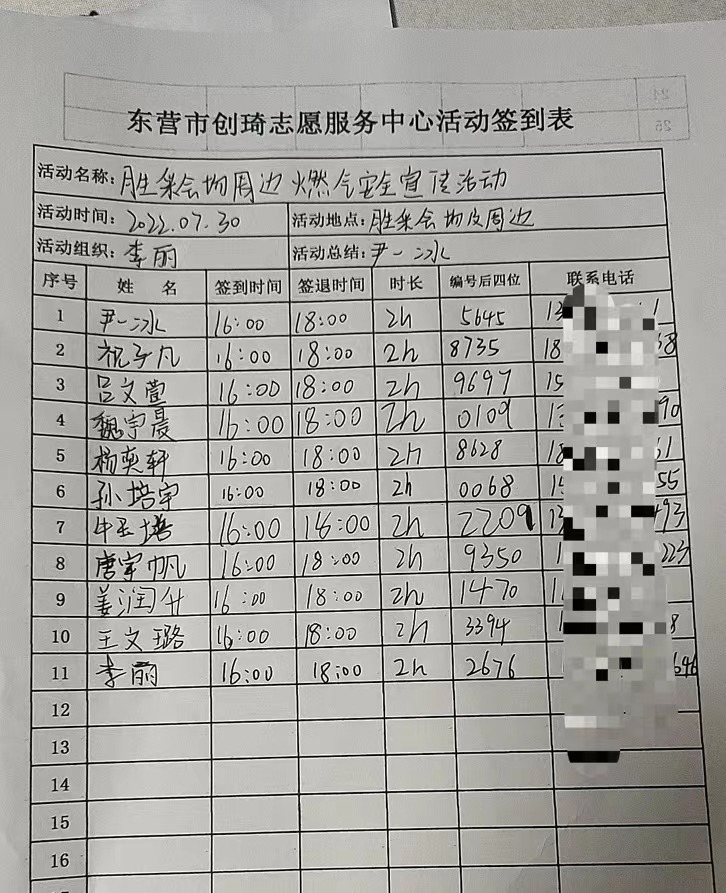 东营市创琦志愿服务中心活动签到表
活动名称: 胜采会场周边燃气安全宣传活动
活动时间: 2022.07.30 活动地点: 胜采会场及周边
活动组织: 李丽 活动总结: 尹一冰
序号 姓 名 签到时间 签退时间 时长 编号后四位 联系电话
1 尹一冰 16:00 18:00 2h 5645 13 1
2 祝子凡 16:00 18:00 2h 8735 18 68
3 吕文萱 16:00 18:00 2h 9697 15
4 魏宇晨 16:00 18:00 2h 0109 13 90
5 杨奕轩 16:00 18:00 2h 8628 18 61
6 孙培宇 16:00 18:00 2h 0068 15 55
7 牛玉培 16:00 18:00 2h 2209 13 493
8 唐宇帆 16:00 18:00 2h 9350 1 223
9 姜润升 16:00 18:00 2h 1470 1
10 王文璐 16:00 18:00 2h 3394 1 8
11 李丽 16:00 18:00 2h 2676 646
12
13
14
15
16